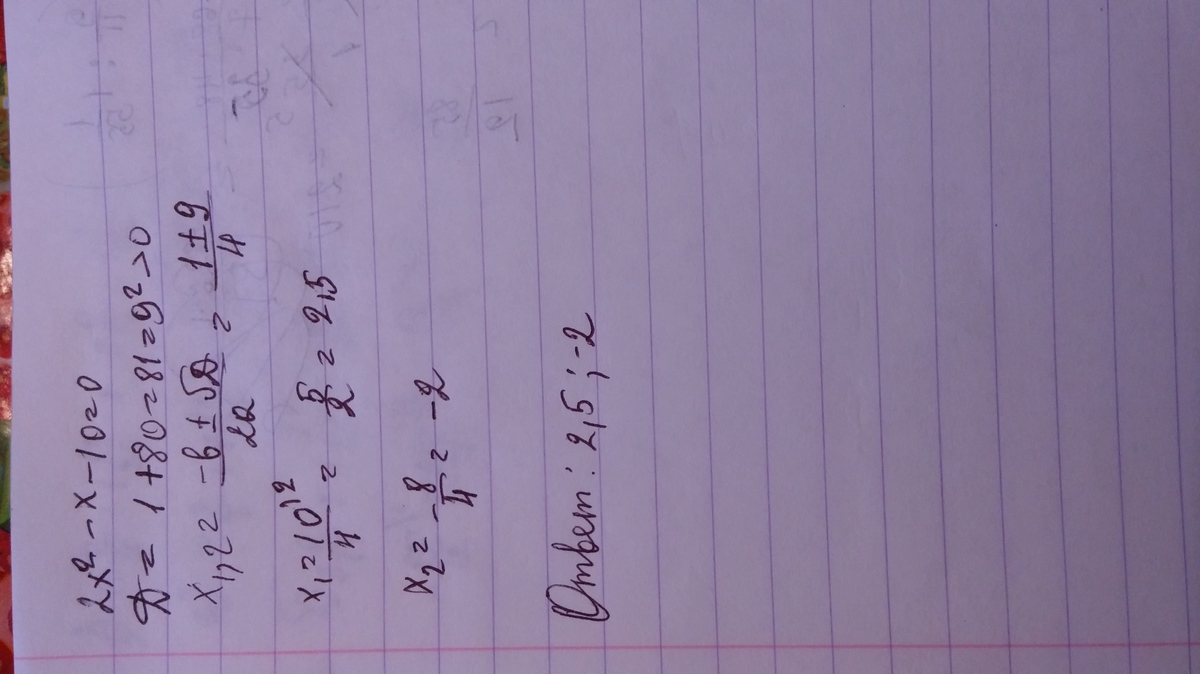 2x² - x - 10 = 0
D = 1 + 80 = 81 = 9² > 0
x₁,₂ = (-b ± √D)/2a = (1 ± 9)/4
x₁ = 10^(12)/4 = 5/2 = 2,5
x₂ = -8/4 = -2
Ответ: 2,5 ; -2